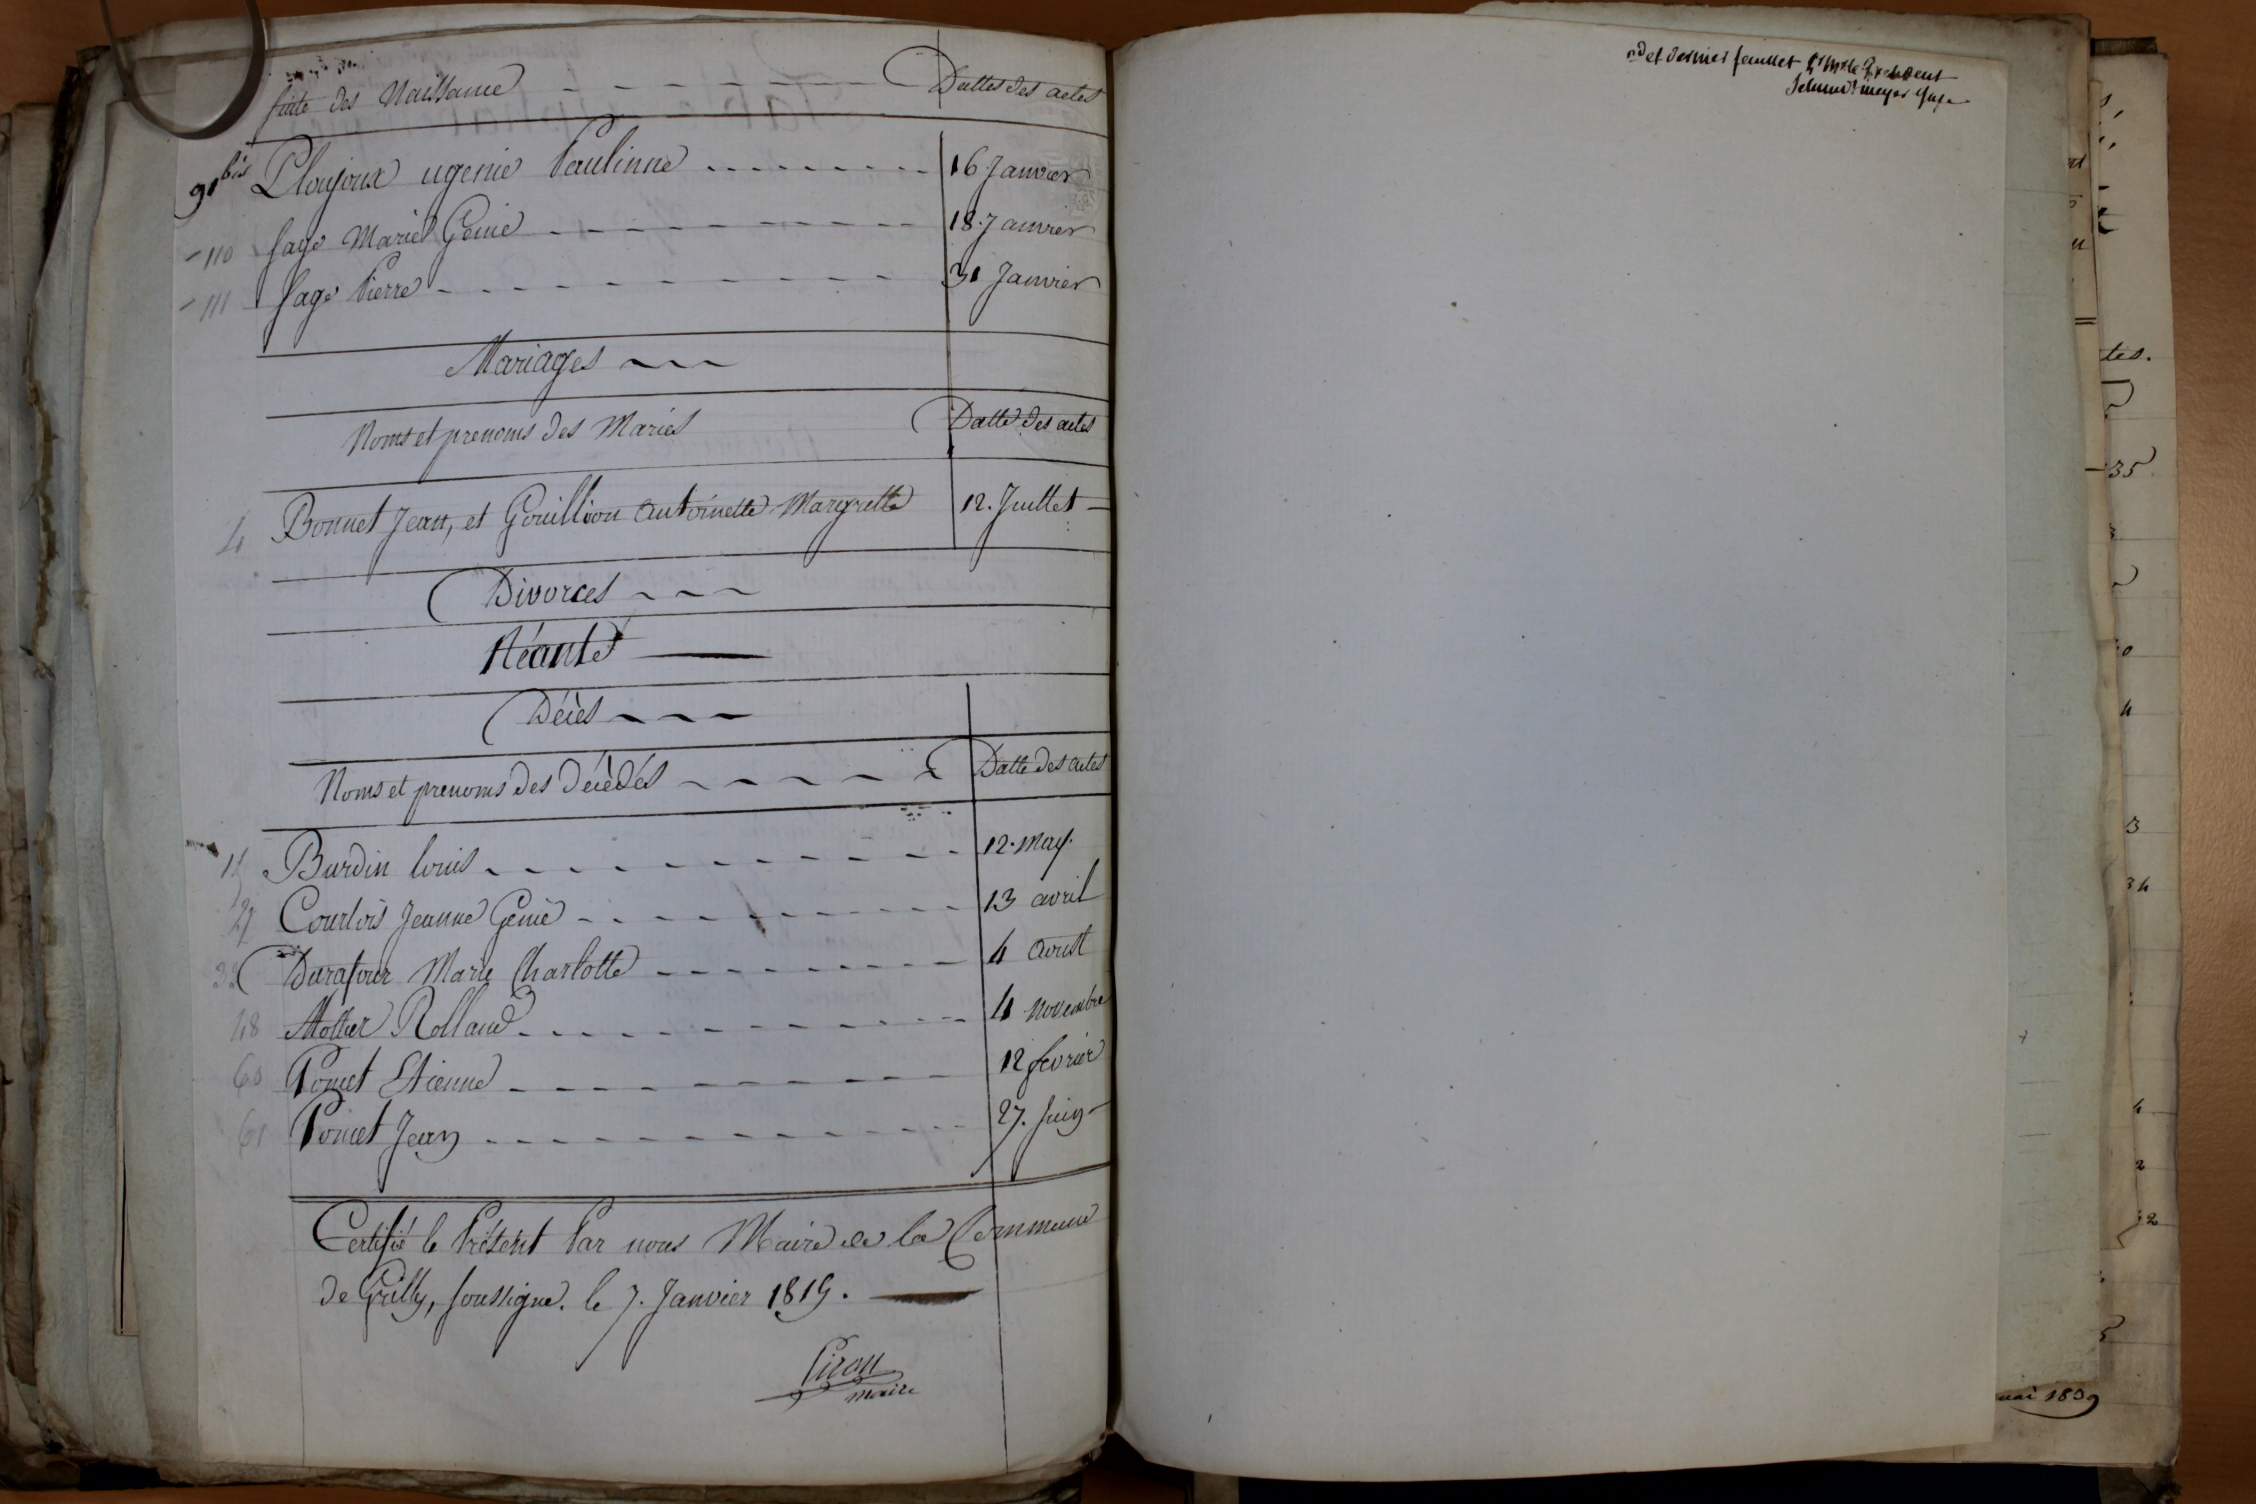 Suite des Naissance Dattes des actes
91 bis Ploujoux ugenie Paulinne 16 Janvier
110 Sage Marie Genie 18. Janvier
111 Sage Pierre 31 Janvier
Mariages
Noms et prenoms des Mariés Datte des actes
4 Bonnet Jean, et Gouillion Antoinette Margrette 12. Juillet
Divorces
Néante
Décès
Noms et prenoms des Décèdés Datte des actes
Burdin Louis 12. May.
Courtois Jeanne Genie 13 avril
Durafour Marie Charlotte 4 Aoust
48 Mottier Rolland 4 Novembre
60 Poncet Etienne 12 fevrier
61 Poncet Jean 27. Juin
Certifié le Présent Par nous Maire de la Commune
de Grilly, soussigné. le 7. Janvier 1819.
Girod
maire
et dernier feuillet Pr Mr le President
Juge
tes.
35
3
0
4
3
34
4
2
2
mai 1839